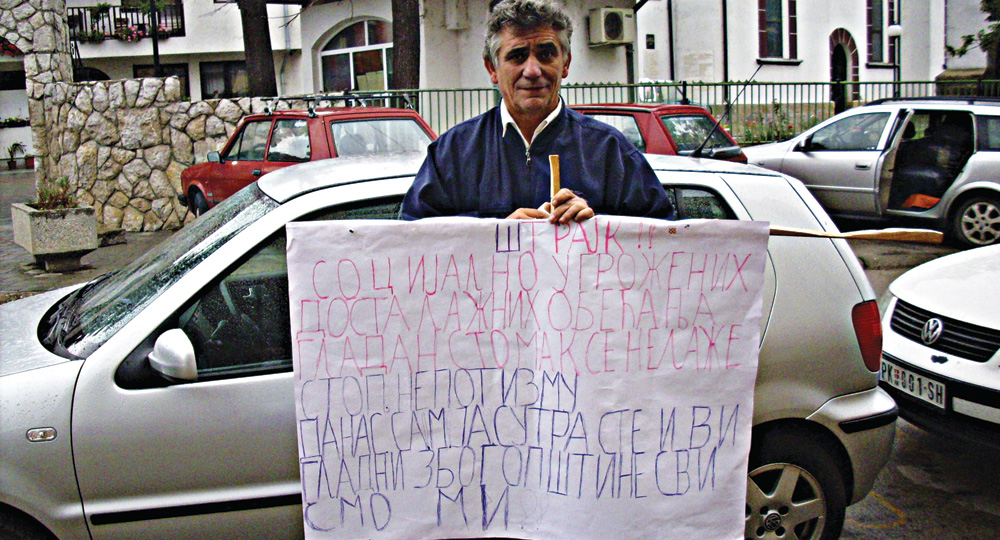 ШТРАЈК!!
СОЦИЈАЛНО УГРОЖЕНИХ
ДОСТА ЛАЖНИХ ОБЕЋАЊА
ГЛАДАН СТОМАК СЕ НЕ ЛАЖЕ
СТОП. НЕПОТИЗМУ
ДАНАС САМ ЈА СУТРА СТЕ И ВИ
ГЛАДНИ ЗБОГ ОПШТИНЕ СВИ
СМО МИ
PK 001-SH